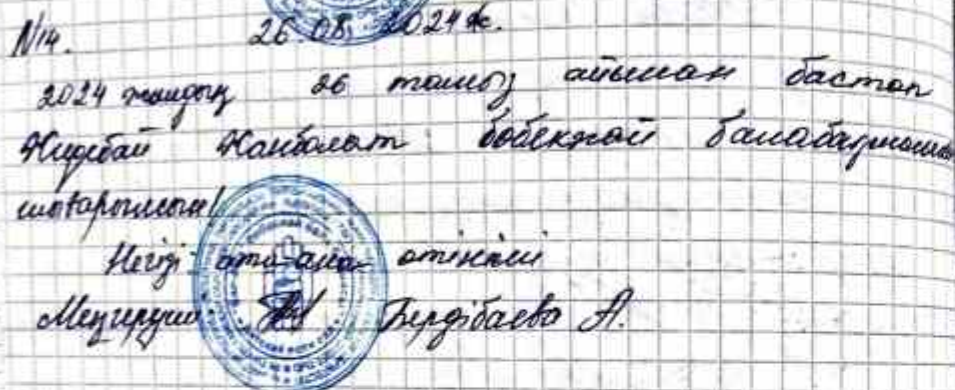 №14. 26.08. 2024ж.
2024 жылдың 26 тамыз айынан бастап
Жанболат бөбекжай балабақшадан
шығарылсын!
Негізі: ата-ана өтініші
Меңгеруші Бердібаева А.